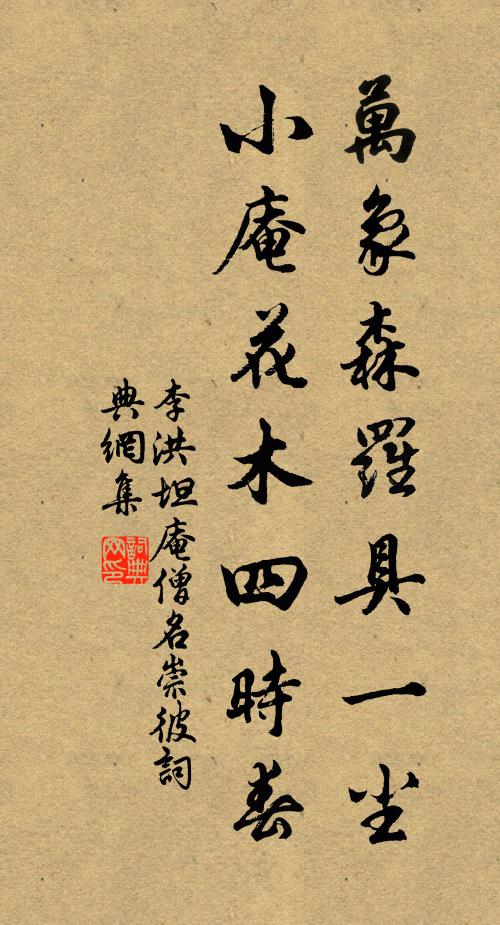 萬象森羅具一尘
小庵花木四時春
李洪坦庵僧名崇彼詞
典網集
詞典网印